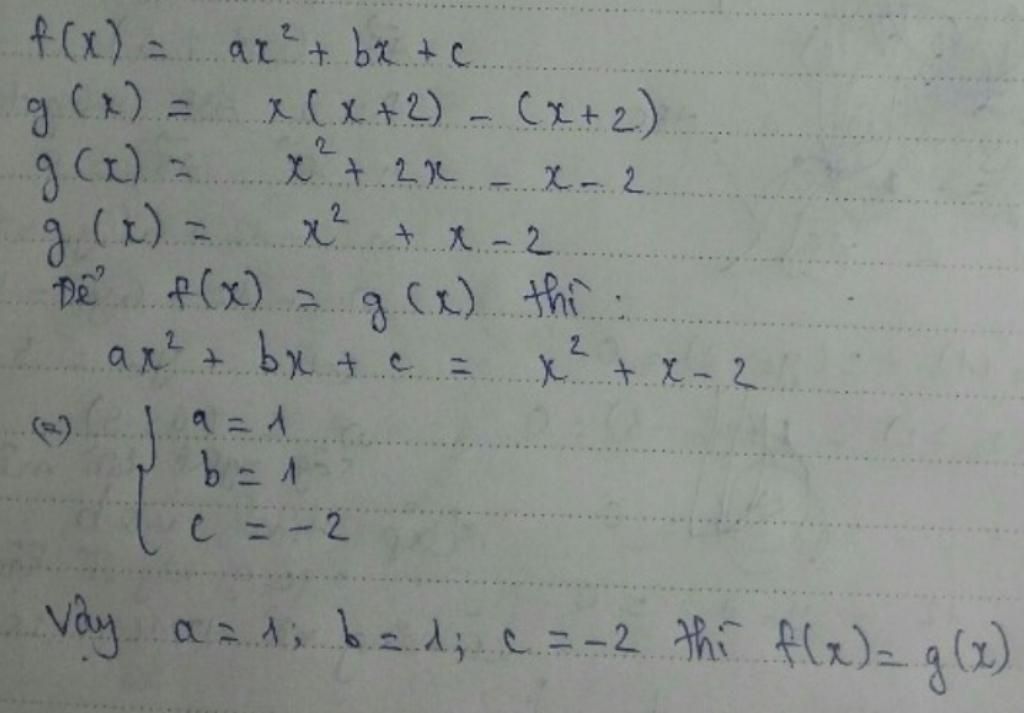 f(x) = ax² + bx + c
g(x) = x(x+2) - (x+2)
g(x) = x² + 2x - x - 2
g(x) = x² + x - 2
Để f(x) = g(x) thì :
ax² + bx + c = x² + x - 2
(=) { a = 1
b = 1
c = -2
Vậy a = 1; b = 1; c = -2 thì f(x) = g(x)